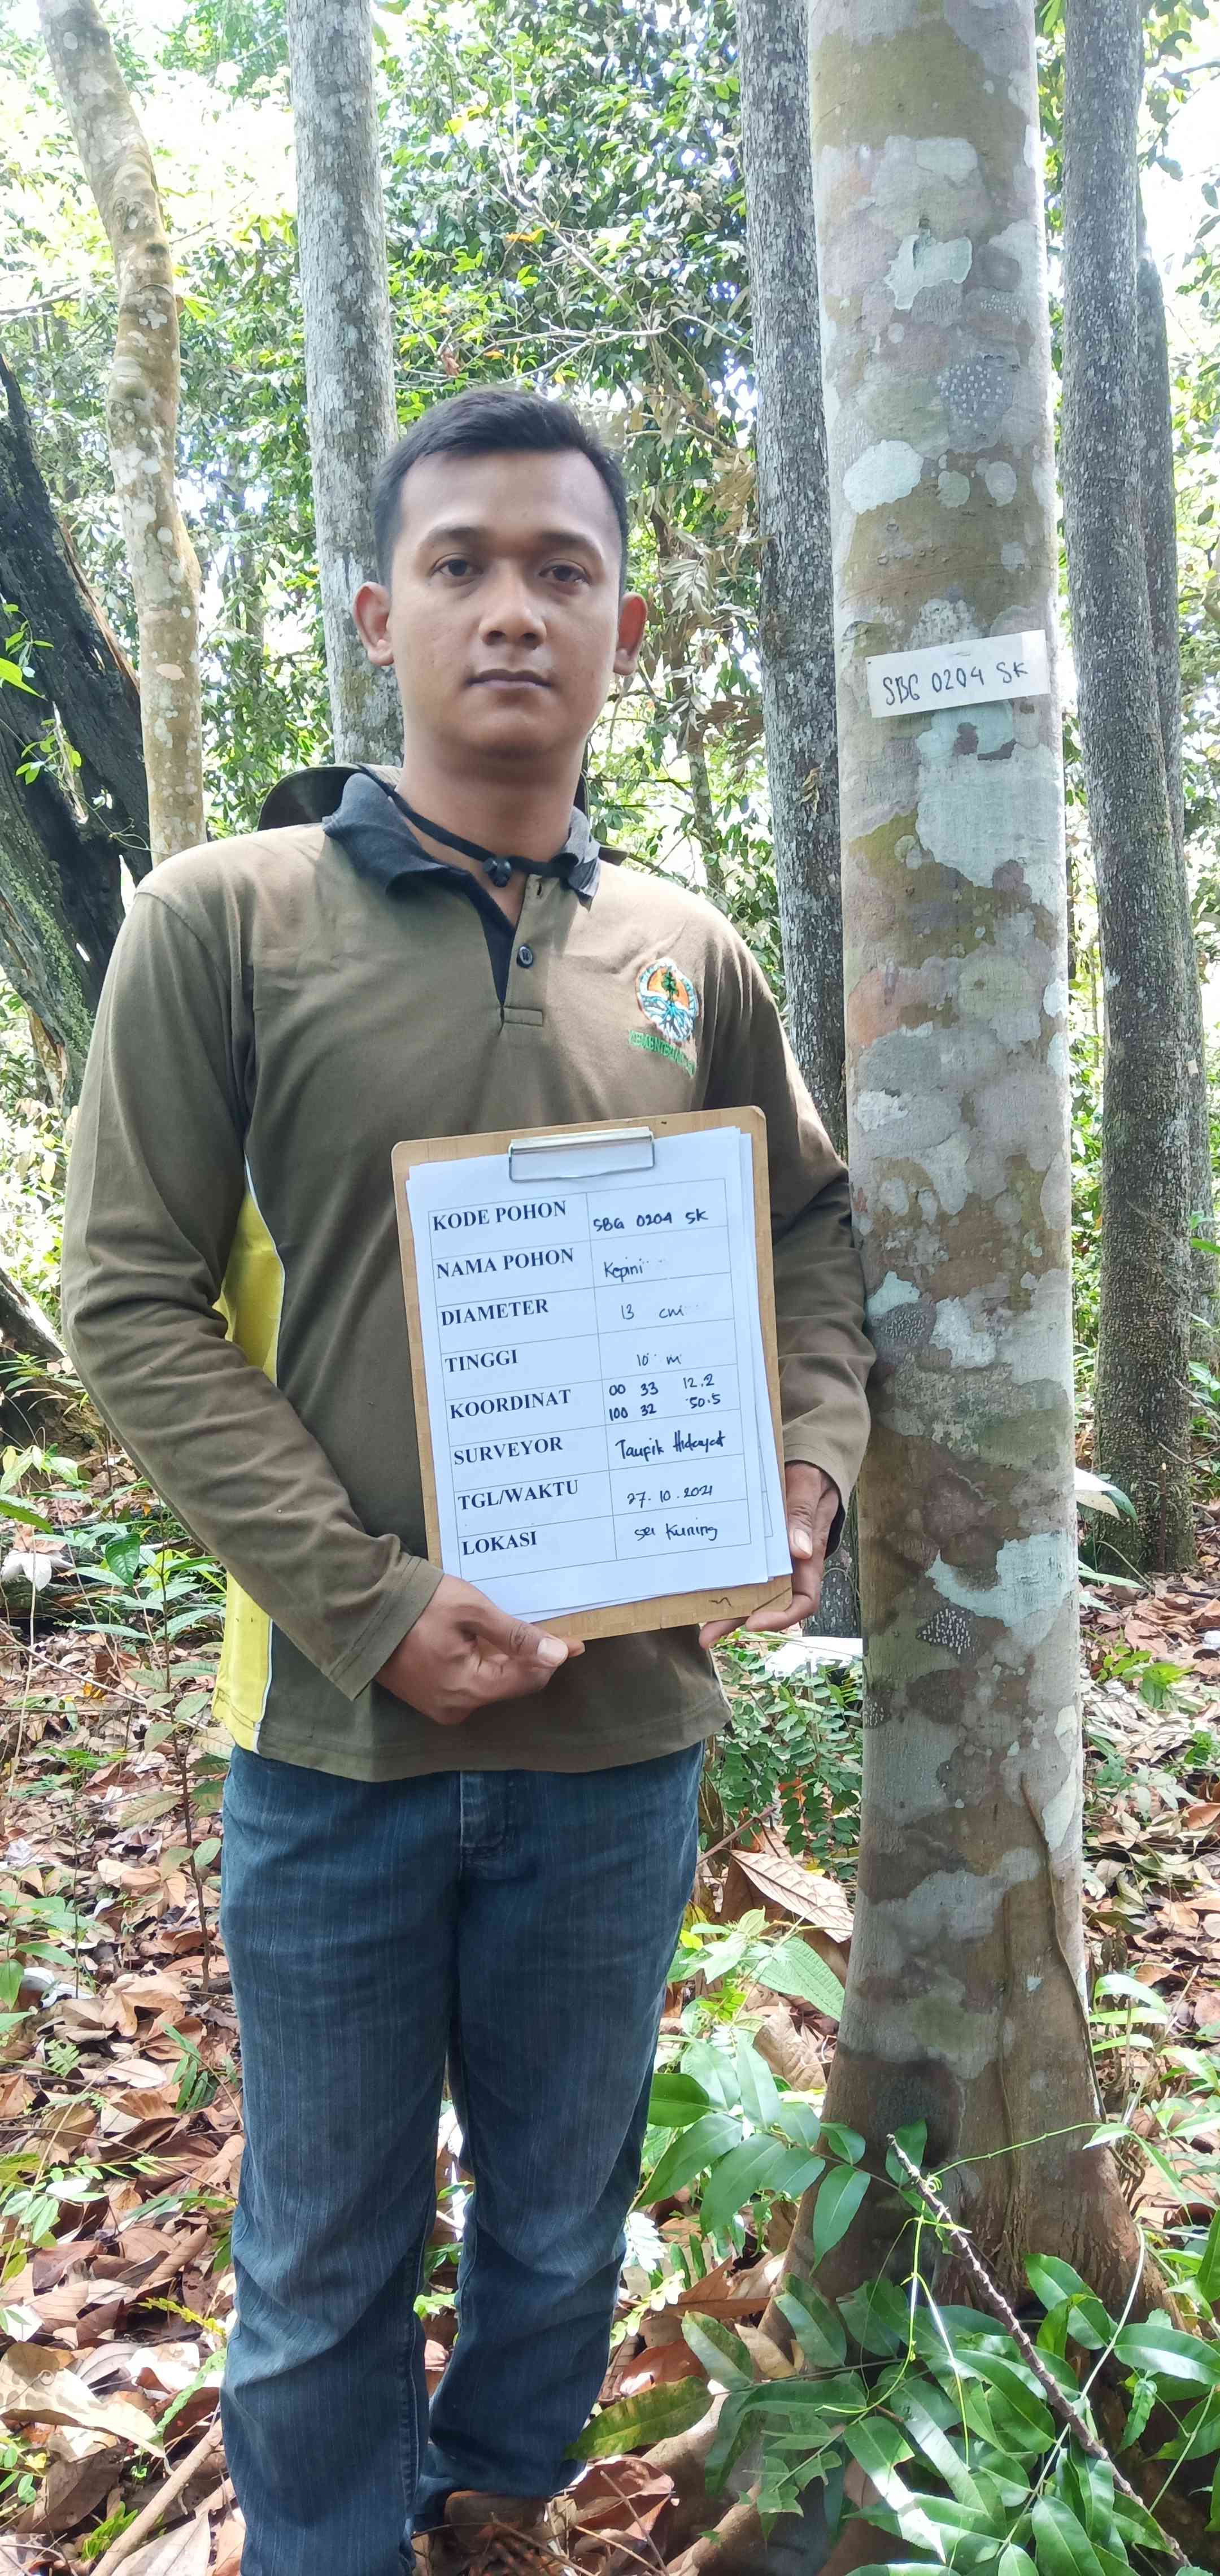 SBG 0204 SK
KODE POHON SBG 0204 SK
NAMA POHON Kepini
DIAMETER 13 cm
TINGGI 10 m
KOORDINAT 00 33 12.2
100 32 50.5
SURVEYOR Taufik Hidayat
TGL/WAKTU 27.10.2021
LOKASI sei Kuning